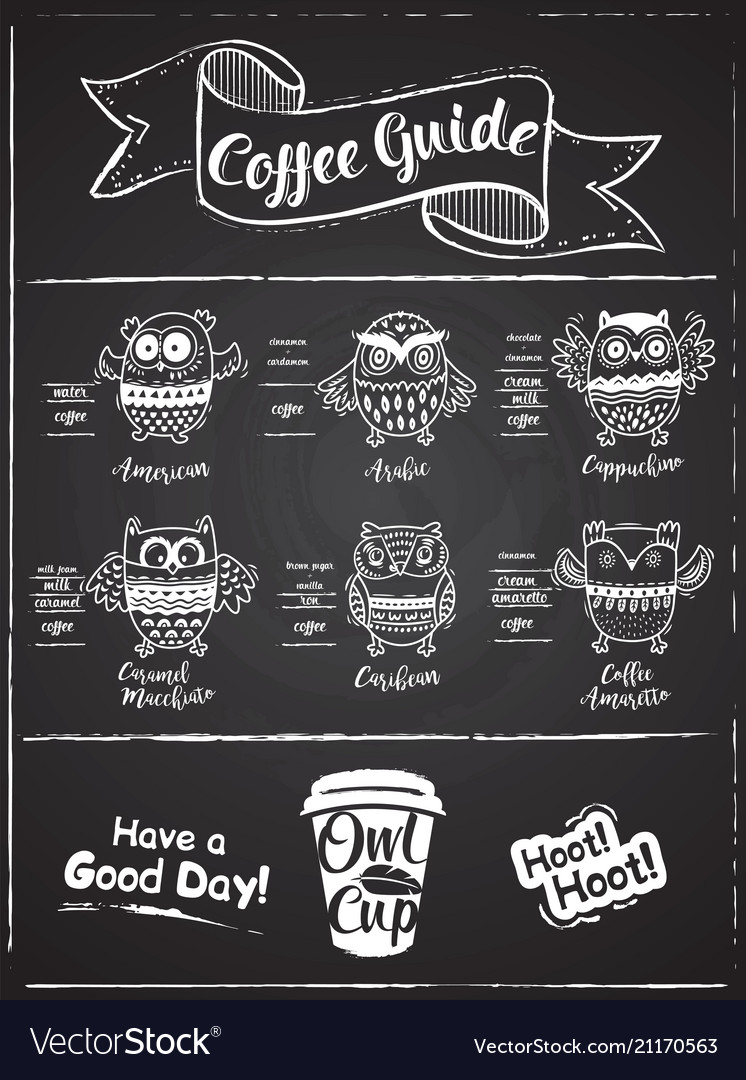 Coffee Guide
water
coffee
American
cinnamon
+
cardamom
coffee
Arabic
chocolate
+
cinnamon
cream
milk
coffee
Cappuchino
milk foam
milk
caramel
coffee
Caramel
Macchiato
brown sugar
+
vanilla
ron
coffee
Caribean
cinnamon
cream
amaretto
coffee
Coffee
Amaretto
Have a
Good Day!
Owl
Cup
Hoot!
Hoot!
VectorStock®
VectorStock.com/21170563